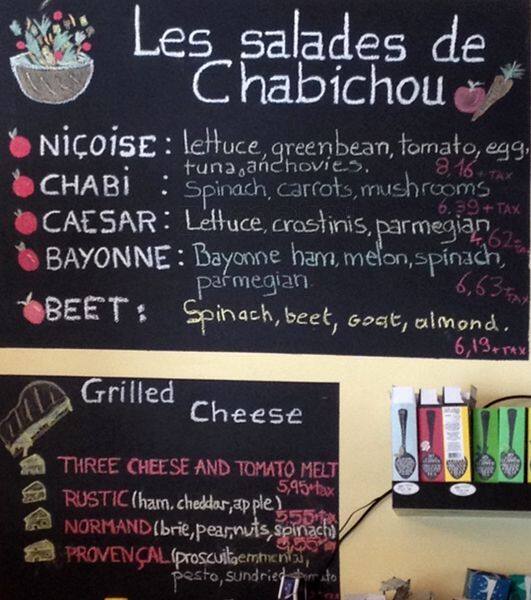 Les salades de
Chabichou
NIÇOISE: lettuce, greenbean, tomato, egg,
tuna, anchovies. 8,16 + TAX
CHABI : Spinach, carrots, mushrooms
6,39 + TAX
CAESAR: Lettuce, crostinis, parmegian
4,62
BAYONNE: Bayonne ham, melon, spinach,
parmegian. 6,63 + TAX
BEET: Spinach, beet, Goat, almond.
6,19 + TAX
Grilled
Cheese
THREE CHEESE AND TOMATO MELT
5,95 + tax
RUSTIC (ham, cheddar, apple)
5,55 + tax
NORMAND (brie, pear, nuts, spinach)
PROVENÇAL (proscuito, emmental,
pesto, sundried tomato